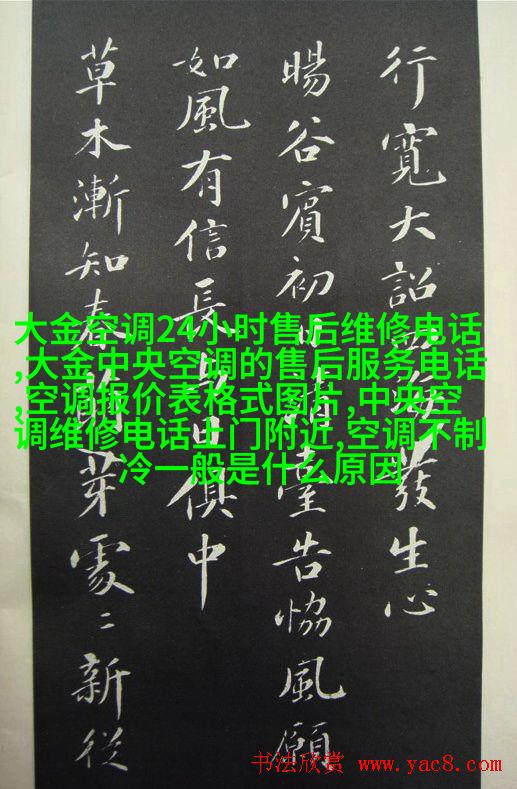 行寬大詔發生心
暘谷賓初日清臺告恊風願
如風有信長與日俱中
草木漸知春萌芽處〻新從
大金空调24小时售后维修电话
,大金中央空调的售后服务电话
,空调报价表格式图片,中央空
调维修电话上门附近,空调不制
冷一般是什么原因
书法欣赏 www.yac8.com